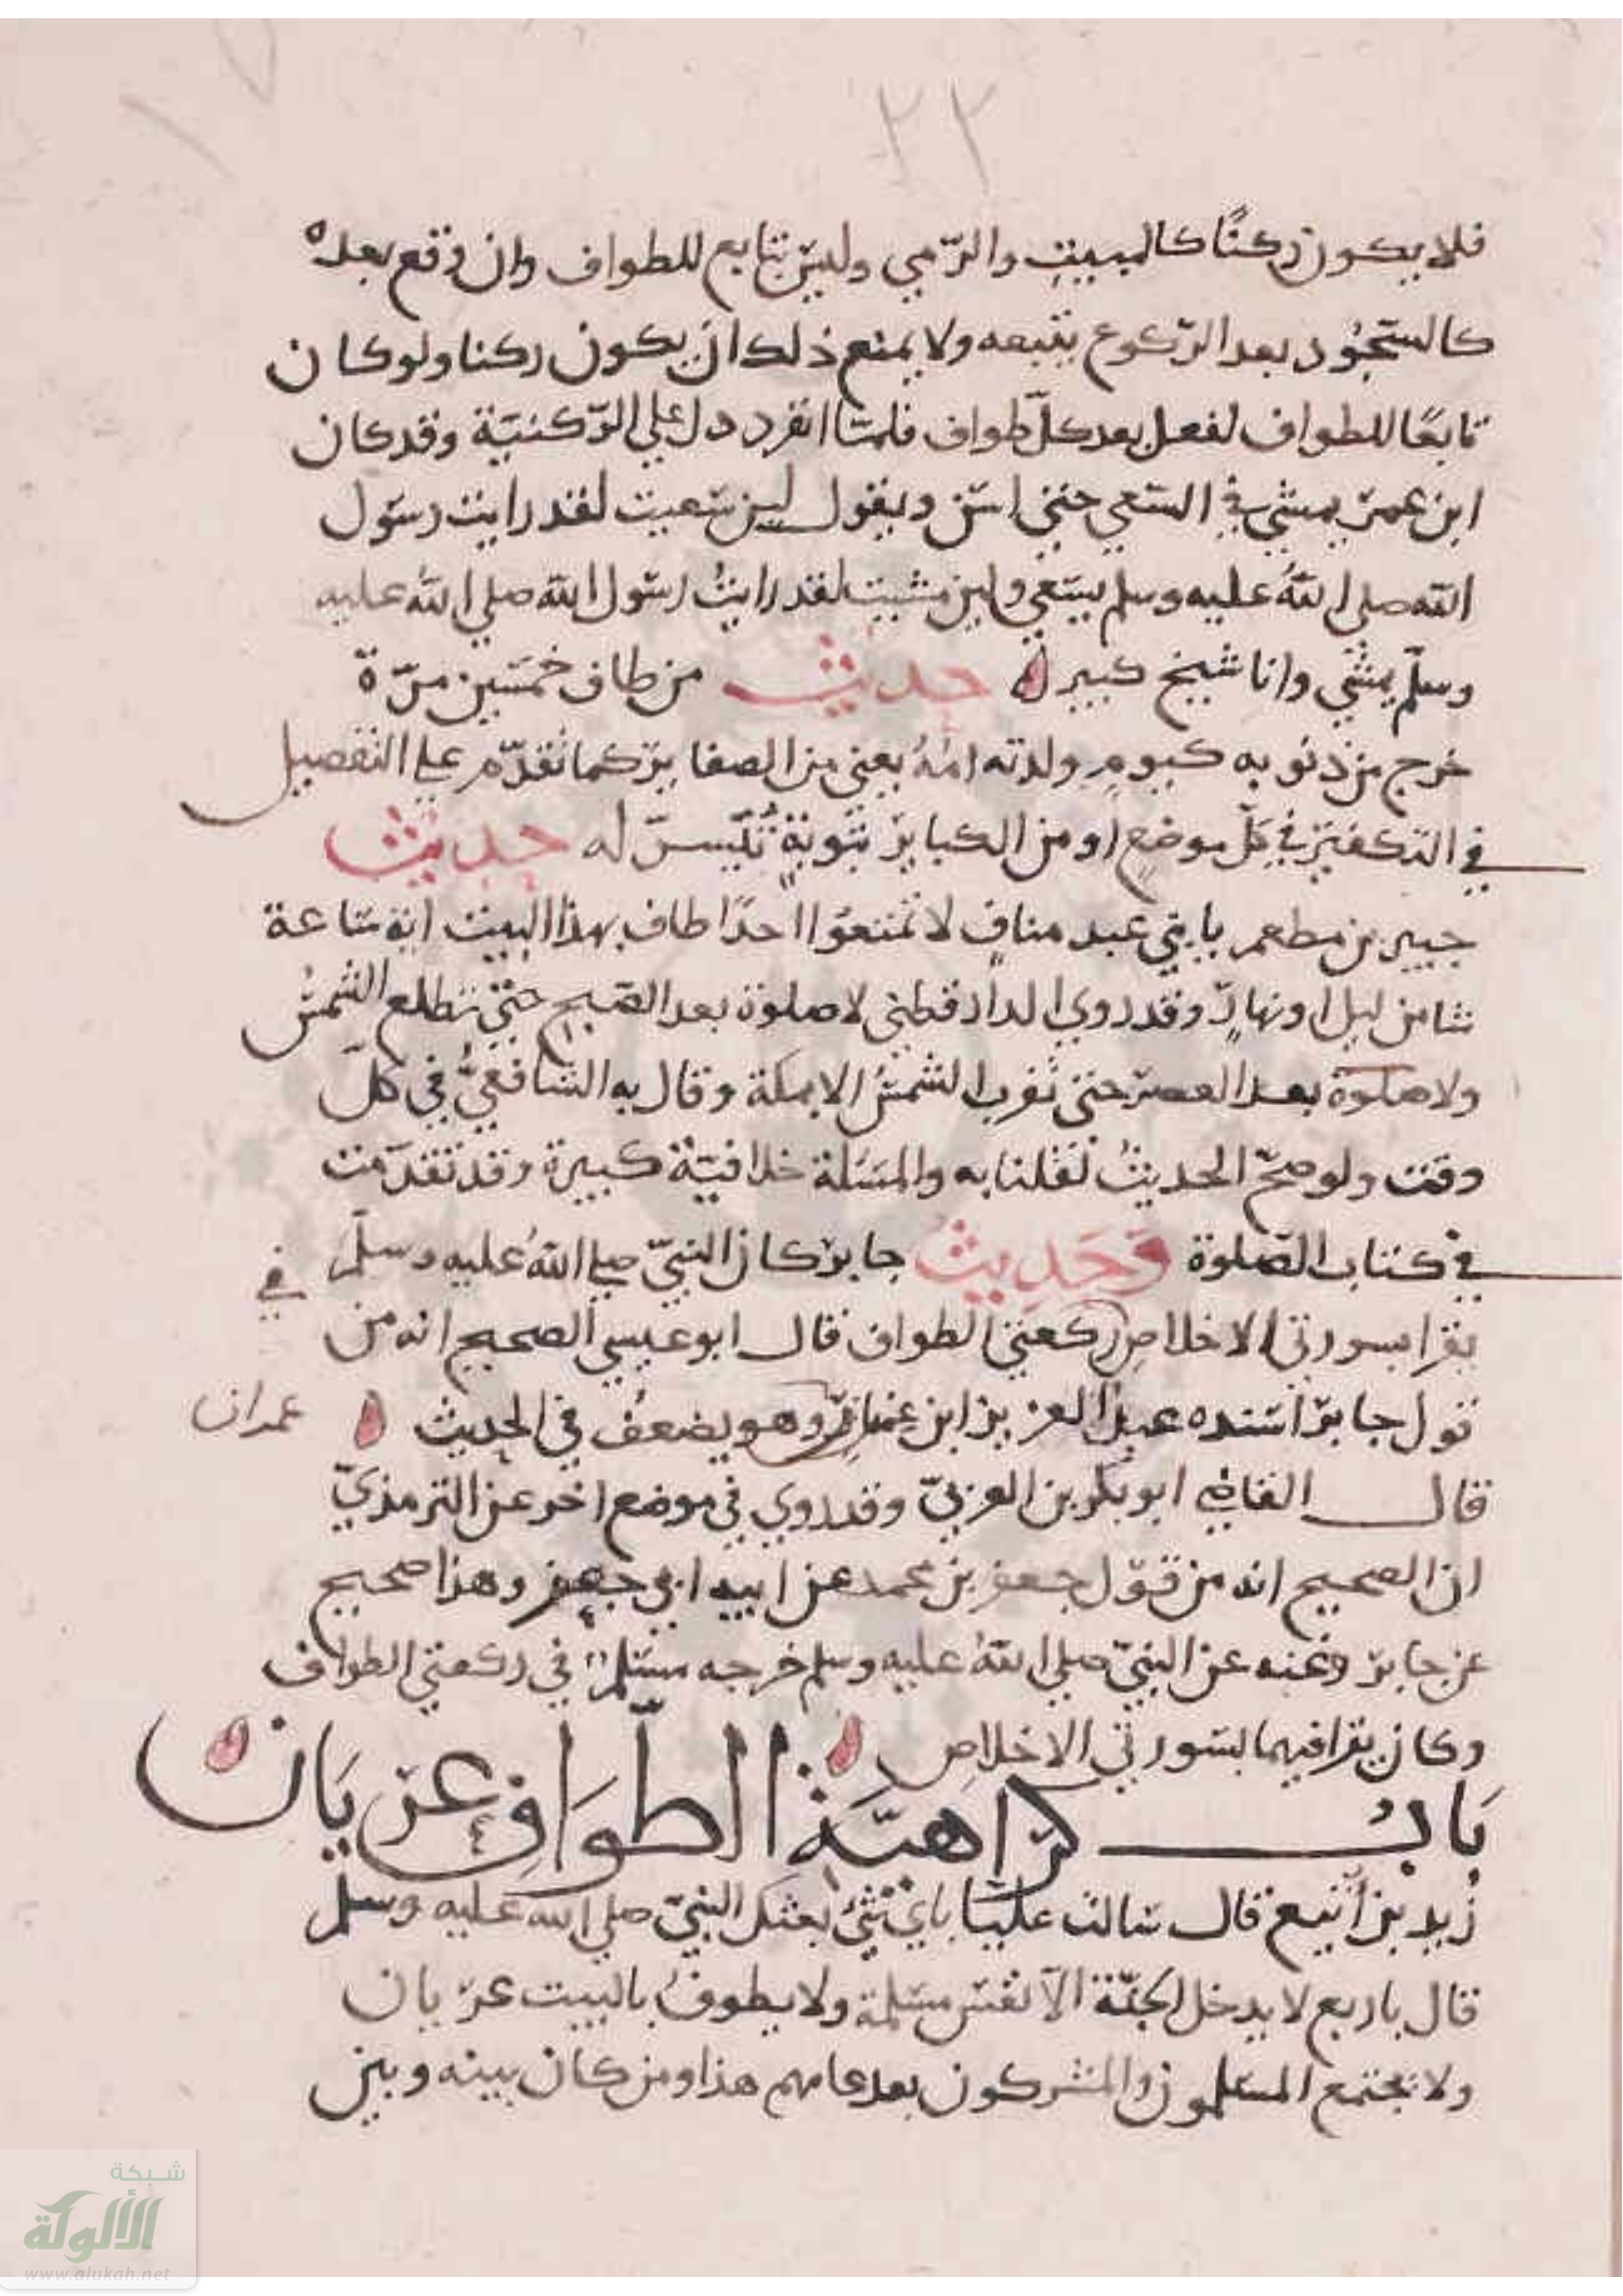 ٢٢
فلا يكون ركنًا كالمبيت والرّمي وليس بتابع للطواف وان وقع بعده
كالسّجود بعد الرّكوع يتبعه ولا يمنع ذلك ان يكون ركنا ولو كان
تابعًا للطواف لفعل بعد كلّ طواف فلمّا انفرد دل على الرّكنيّة وقد كان
ابن عمر يمشي في السّعي حتى اسنّ ويقول لين سعيت لقد رايت رسول
الله صلى الله عليه وسلم يسعي ولين مشيت لقد رايتُ رسول الله صلي الله عليه
وسلّم يمشي وانا شيخ كبير ه حديث من طاف خمسين مرّة
خرج من ذنوبه كيومِ ولدته امّهُ يعني من الصغاير كما تقدّم علي التفصيل
في التكفير في كلّ موضعٍ او من الكباير بتوبةٍ تُيسّر له حديث
جبير بن مطعم يا بني عبد منافٍ لا تمنعوا احدًا طاف بهذا البيت اية ساعة
شا من ليل او نهارٍ وقد روي الدارقطني لا صلوة بعد الصّبح حتّي تطلع الشمسُ
ولا صلوة بعد العصر حتى تغرب الشمسُ الا بمكة وقال به الشافعيُّ في كلّ
وقت ولو صحّ الحديثُ لقلنا به والمسئلة خلافيّة كبيرة وقد تقدّمت
في كتاب الصّلوة وَحَدِيثُ جابر كان النبيّ صلي الله عليه وسلّم
يقرا بسورتي الاخلاصِ في ركعتي الطواف قال ابو عيسي الصحيح انه من
قول جابر اسنده عبد العزيز ابن عمران وهو يضعفُ في الحديث ه عمران
قال القاضي ابو بكر بن العربيّ وقد روي في موضع اخر عن الترمذيّ
ان الصحيح انه من قول جعفر بن محمد عن ابيه ابي جعفر وهذا صحيح
عن جابر وعنه عن النبيّ صلي الله عليه وسلم خرجه مسلم في ركعتي الطواف
وكان يقرا فيهما بسورتي الاخلاصِ ه
بَابُ كرَاهيّة الطّوَافِ عرْيَان ه
زيد بن أثيع قال سالت عليّا باي شئ بعثك النبيّ صلي الله عليه وسلم
قال باربع لا يدخل الجنّة الّا نفس مسلمة ولا يطوفُ بالبيت عريان
ولا يجتمع المسلمون والمشركون بعد عامهم هذا ومن كان بينه وبين
شبكة
الألوكة
www.alukah.net